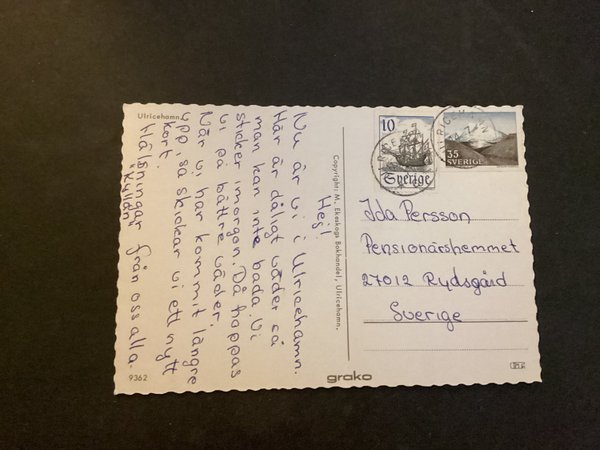 Ulricehamn.
Hej!
Nu är vi i Ulricehamn.
Här är dåligt väder så
man kan inte bada. Vi
sticker imorgon. Då hoppas
vi på bättre väder.
När vi har kommit längre
upp, så skickar vi ett nytt
kort.
Hälsningar från oss alla.
"Kyllan"
9362
Copyright: M. Ekeskogs Bokhandel, Ulricehamn.
grako
10
Sverige
35
SVERIGE
Ida Persson
Pensionärshemmet
27012 Rydsgård
Sverige